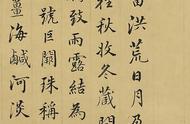 宙洪荒日月
往秋收冬藏閏
致雨露結為
號巨闕珠稱
薑海鹹河淡